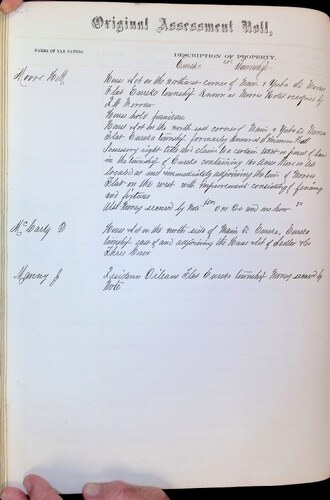 Original Assessment Roll,
NAMES OF TAX PAYERS
DESCRIPTION OF PROPERTY.
Eureka Township
Moore W M
House & Lot on the northwest corner of Main & Yuba Sts Moores
Flat Eureka township known as Moores Hotel occupied by
J W Morrow
House hold furniture
House & Lot on the north east corner of Main & Yuba Sts Moores
Flat Eureka township formerly known as
Possessory right title and claim to a certain tract or parcel of land
in the township of Eureka containing
located at and immediately adjoining the town of Moores
Flat on the west with improvements consisting of fencing
and fixtures
Also Money secured by note on
McCarty D
House & Lot on the north side of Main St Eureka, Eureka
township east of and adjoining the House & Lot of
Manny J
Residence Orleans Flat Eureka township Money secured by
Note